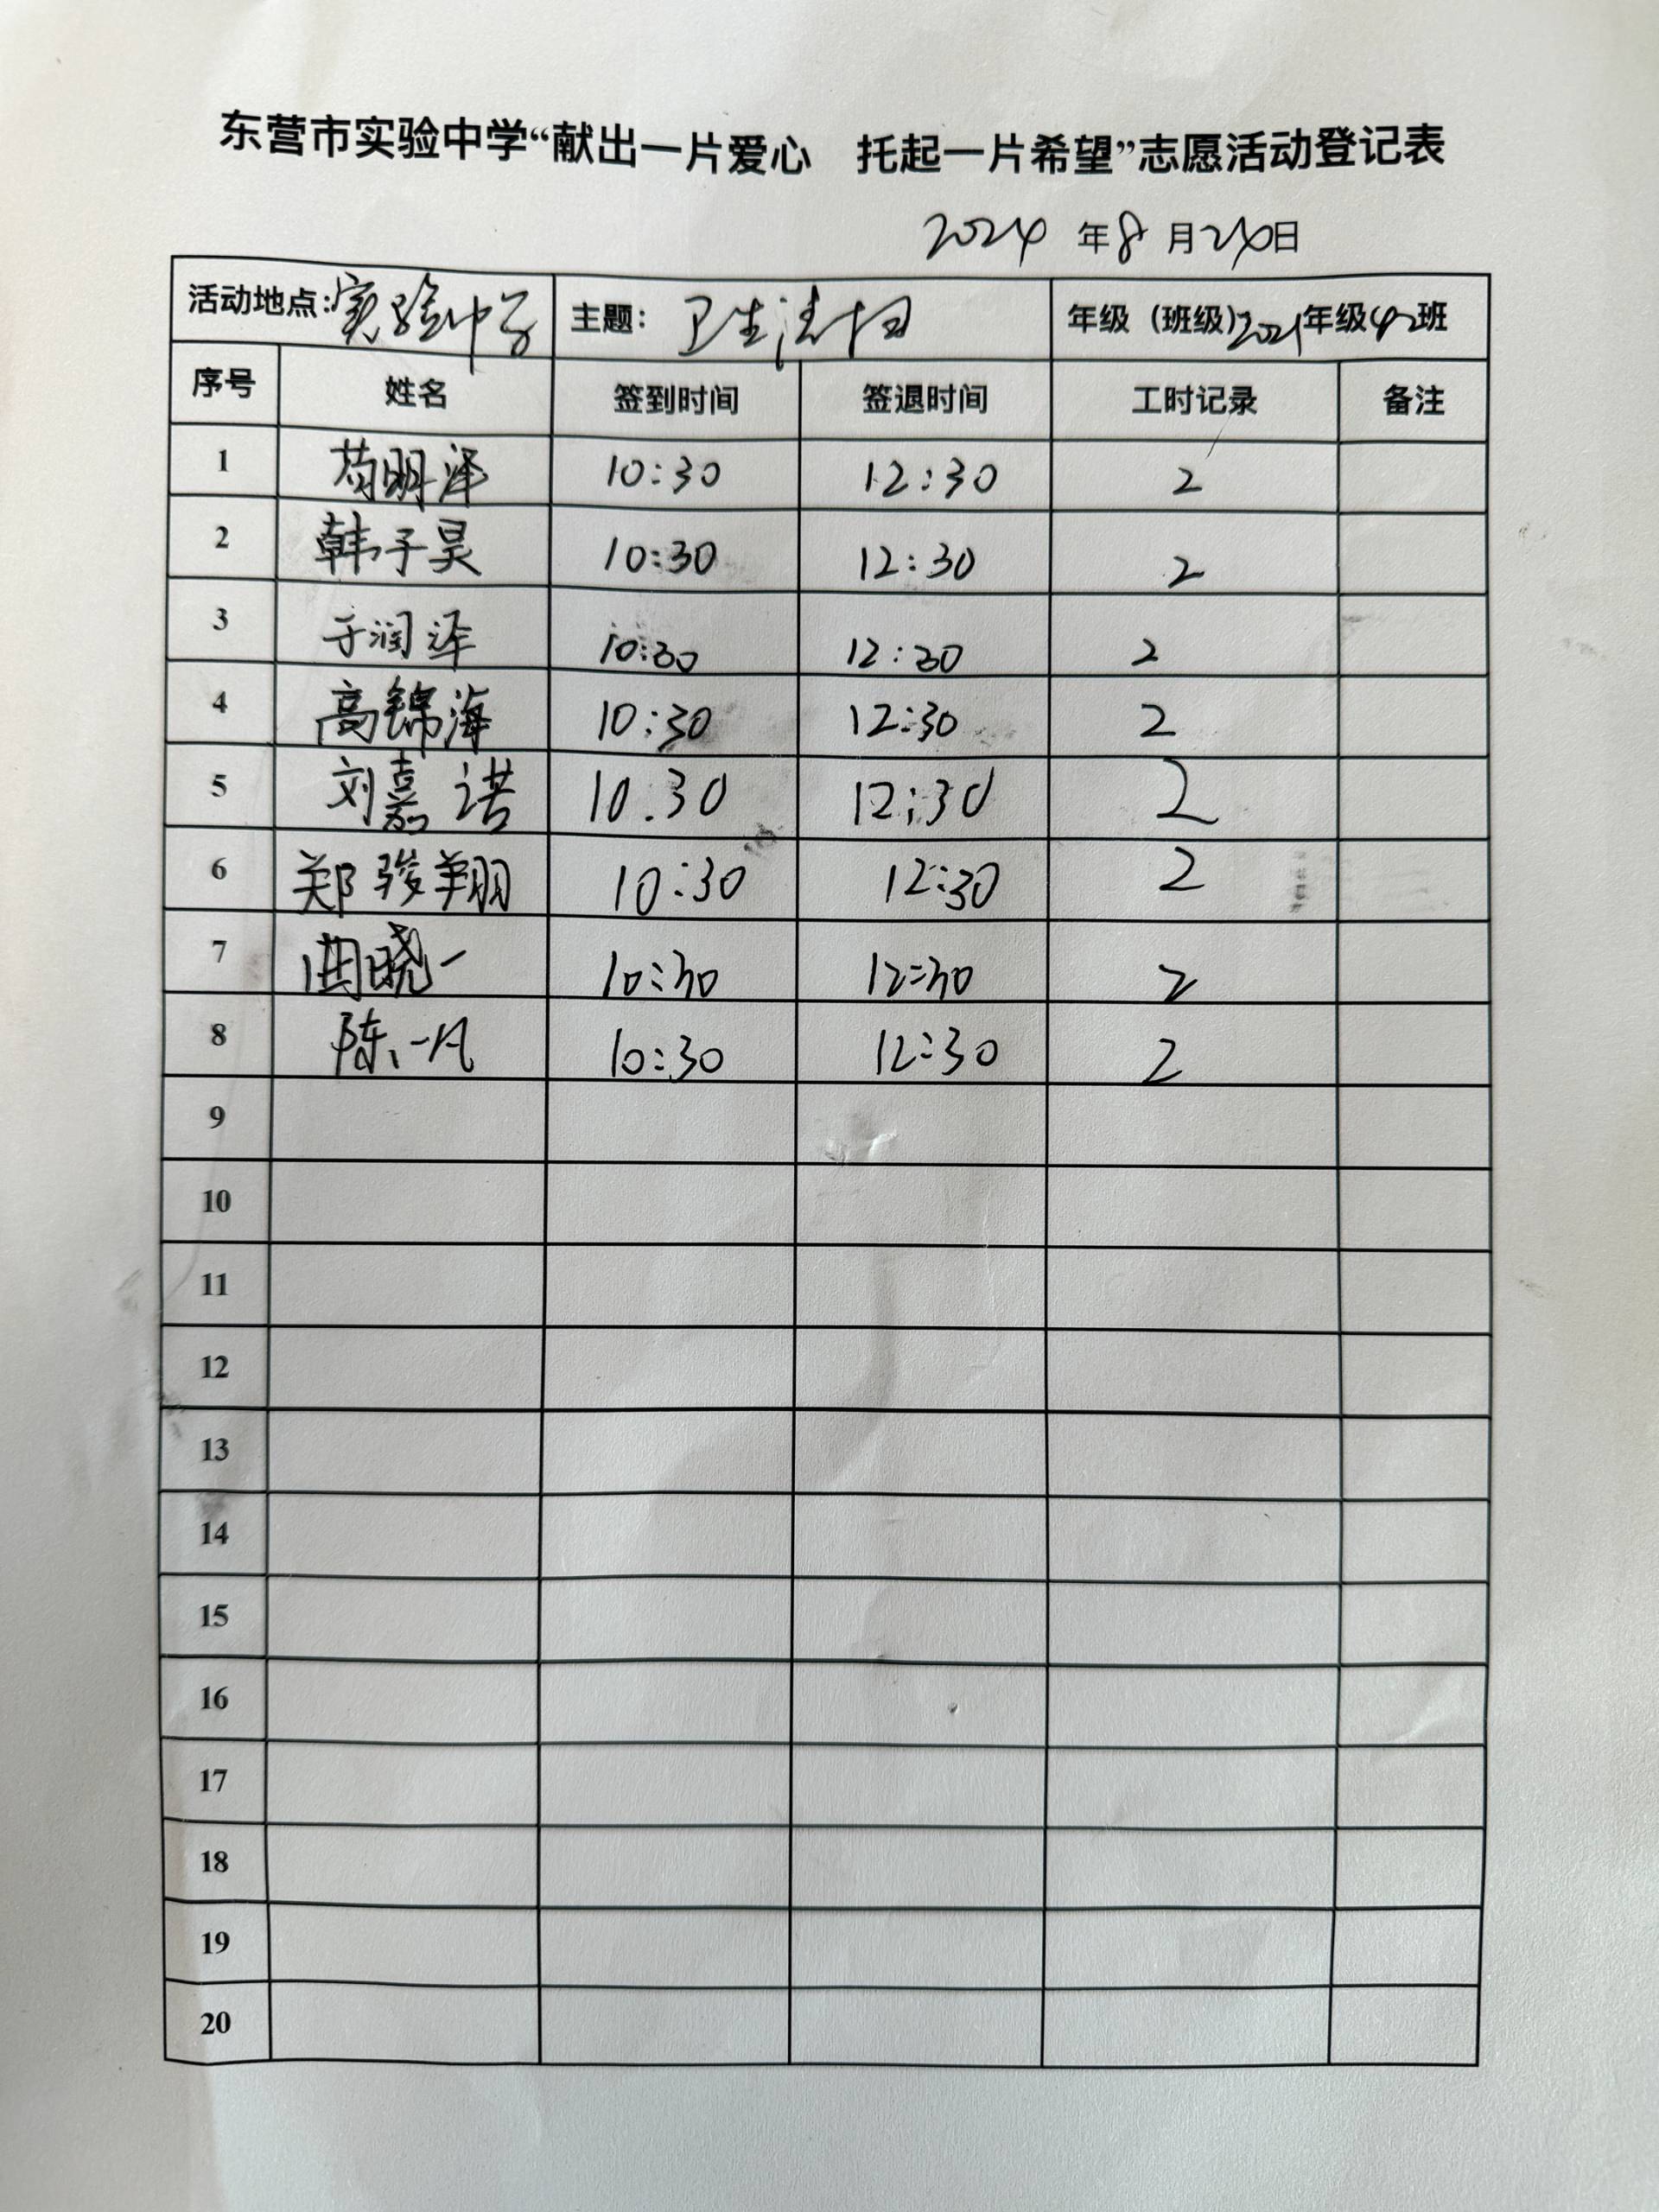 东营市实验中学“献出一片爱心 托起一片希望”志愿活动登记表
2024 年 8 月 24日
活动地点:实验中学 主题: 卫生清扫 年级（班级)2021年级42班
序号 姓名 签到时间 签退时间 工时记录 备注
1 苟明泽 10:30 12:30 2
2 韩子昊 10:30 12:30 2
3 于润泽 10:30 12:30 2
4 高锦海 10:30 12:30 2
5 刘嘉诺 10.30 12:30 2
6 郑骏翔 10:30 12:30 2
7 曲晓一 10:30 12:30 2
8 陈一凡 10:30 12:30 2
9
10
11
12
13
14
15
16
17
18
19
20